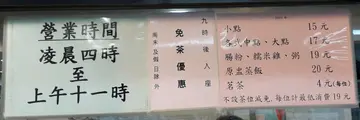 營業時間
凌晨四時
至
上午十一時
九時後入座
免茶優惠
週末及假日除外
小點 15元
各式中點、大點 17元
腸粉、糯米雞、粥 19元
原盅蒸飯 20元
茗茶 4元(每位)
不設茶位減免,每位計最低消費19元